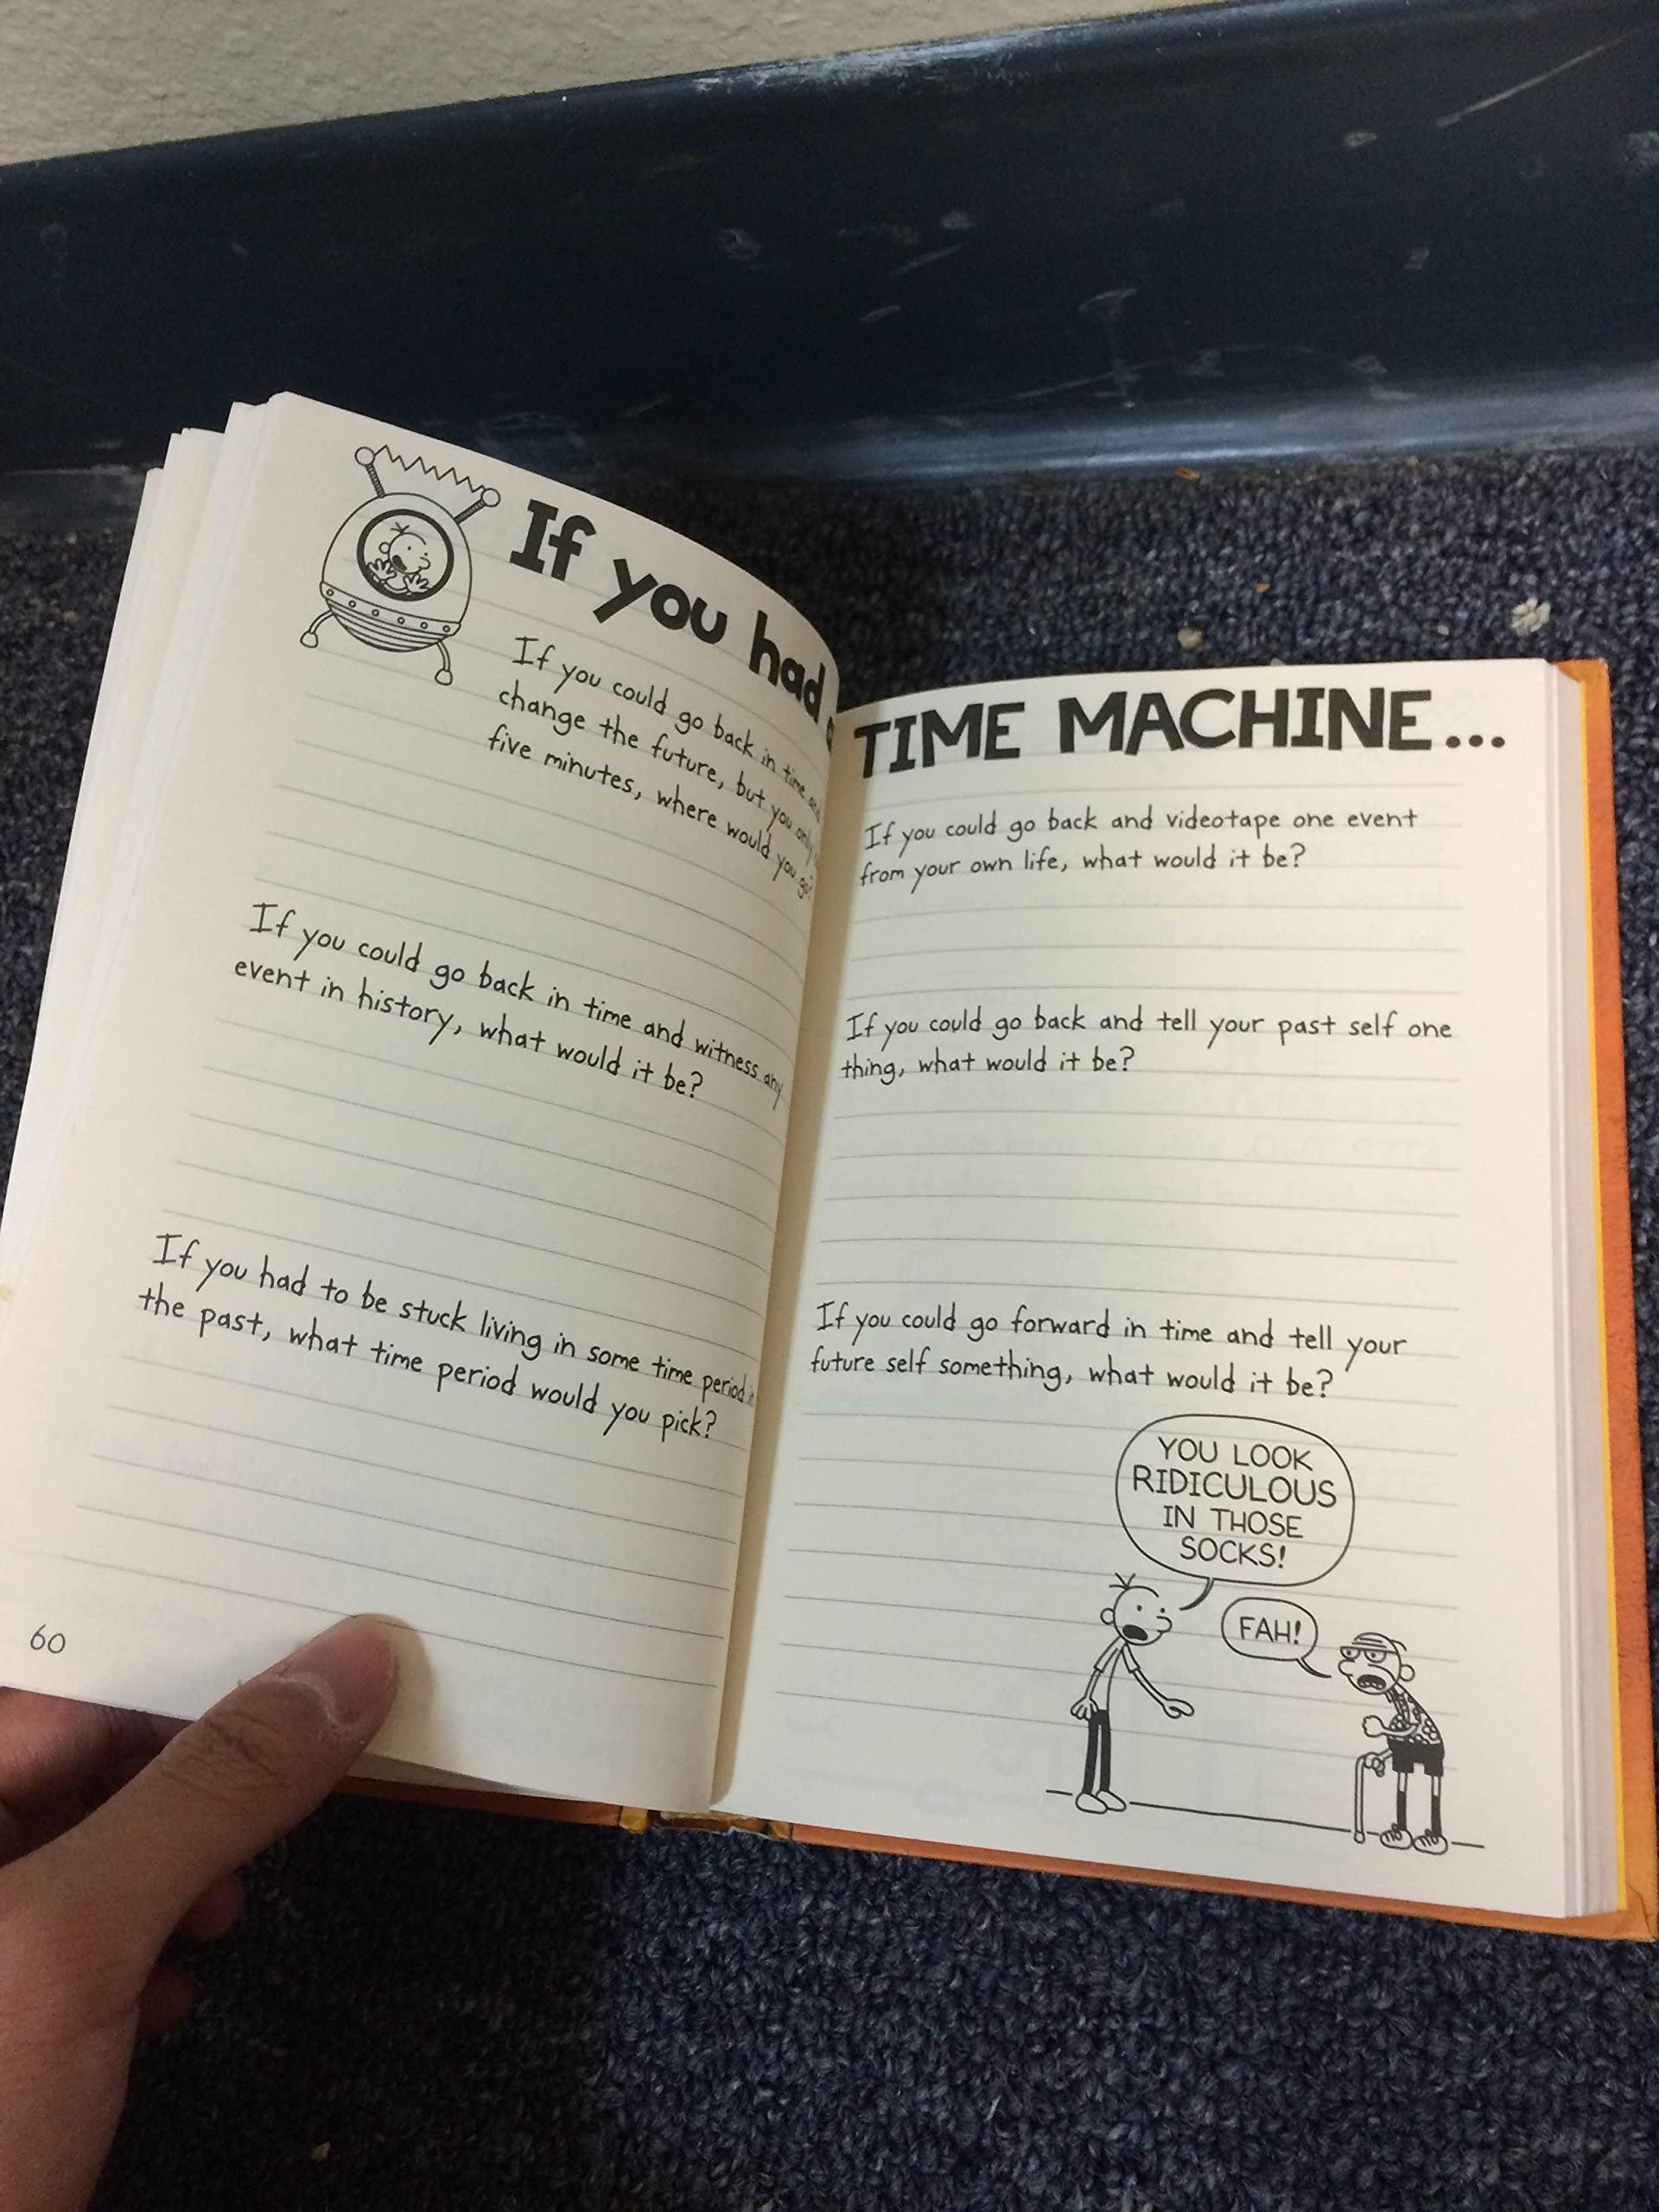 If you had a
If you could go back in time and
change the future, but you only
five minutes, where would you go?
If you could go back in time and witness any
event in history, what would it be?
If you had to be stuck living in some time period in
the past, what time period would you pick?
60
TIME MACHINE...
If you could go back and videotape one event
from your own life, what would it be?
If you could go back and tell your past self one
thing, what would it be?
If you could go forward in time and tell your
future self something, what would it be?
YOU LOOK
RIDICULOUS
IN THOSE
SOCKS!
FAH!